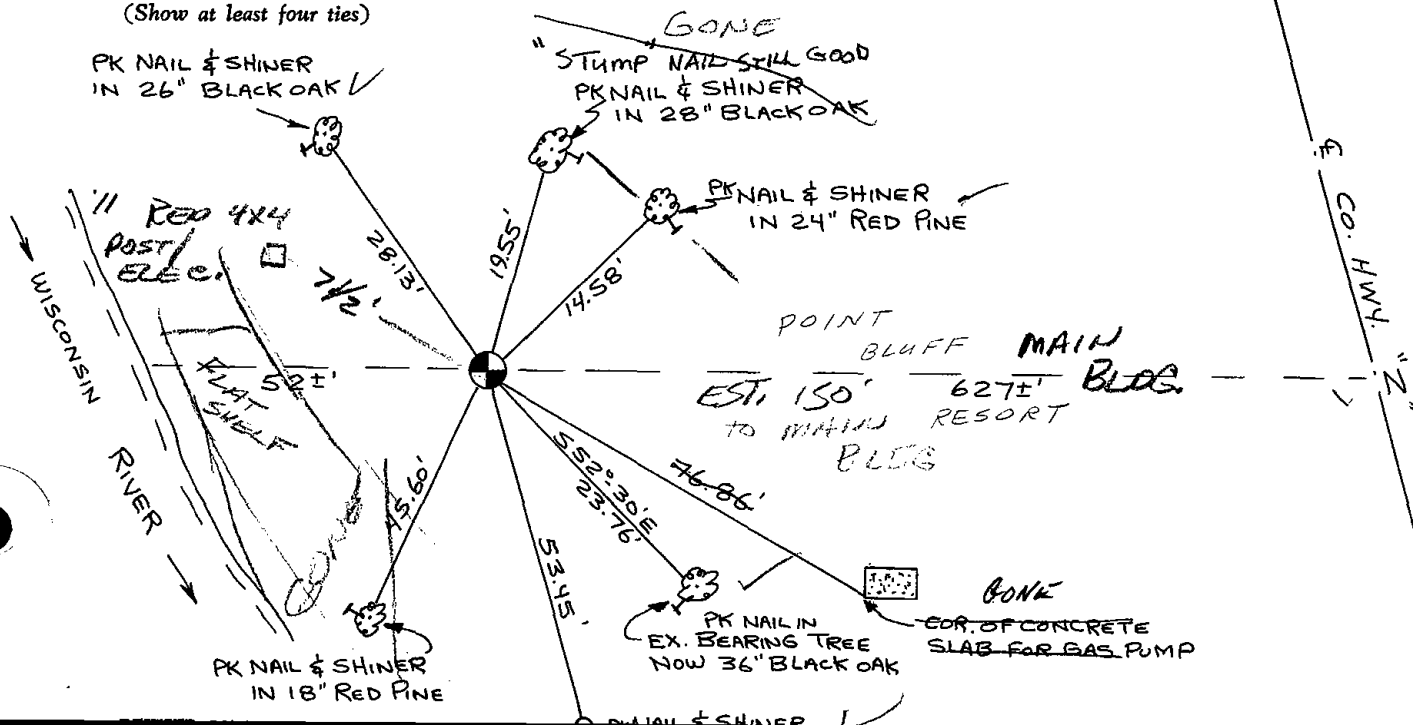 (Show at least four ties)
GONE
"STUMP" NAIL STILL GOOD
PK NAIL & SHINER
IN 26" BLACK OAK
PK NAIL & SHINER
IN 28" BLACK OAK
PK NAIL & SHINER
IN 24" RED PINE
RED 4X4
POST/
ELEC.
7 1/2'
28.13'
19.55'
14.58'
WISCONSIN
RIVER
FLAT
SHELF
52±'
POINT
BLUFF
MAIN
BLDG.
EST. 150'
627±'
TO MAIN RESORT
BLDG
℄ CO. HWY. "Z"
GONE
45.60'
S52°30'E
23.76'
76.86'
53.45'
GONE
COR. OF CONCRETE
SLAB FOR GAS PUMP
PK NAIL IN
EX. BEARING TREE
NOW 36" BLACK OAK
PK NAIL & SHINER
IN 18" RED PINE
NAIL & SHINER